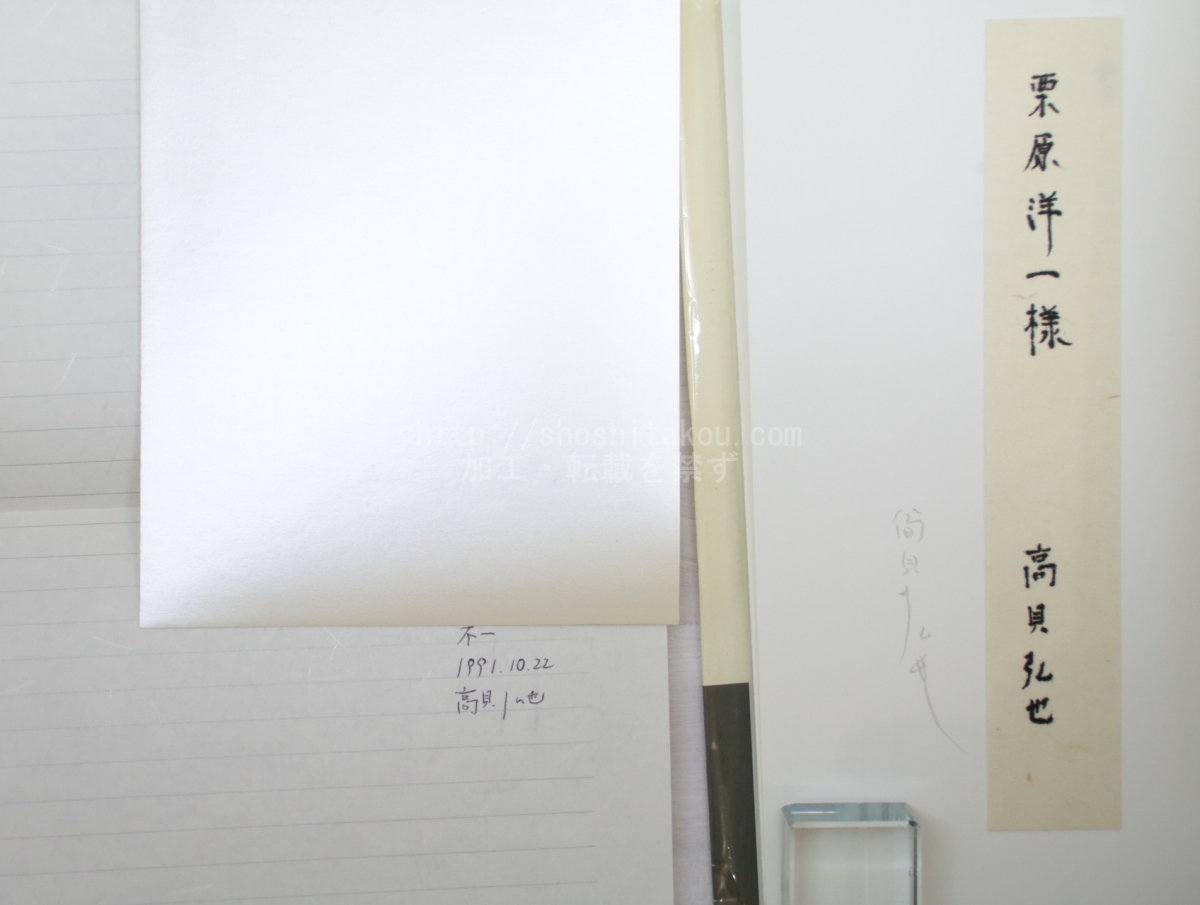 栗原洋一様
高貝弘也
高貝弘也
不一
1991.10.22
高貝弘也
©http://shoshitakou.com
加工・転載を禁ず